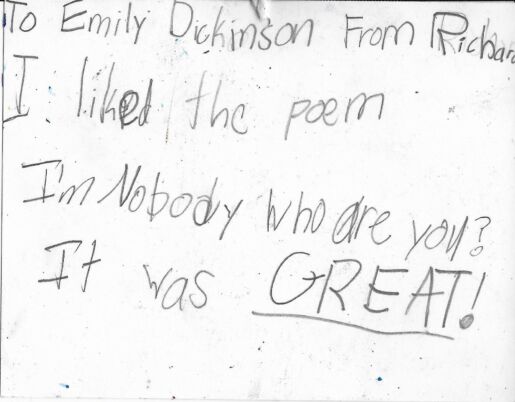 To Emily Dickinson From Richar
I liked the poem
I'm Nobody who are you?
It was GREAT!